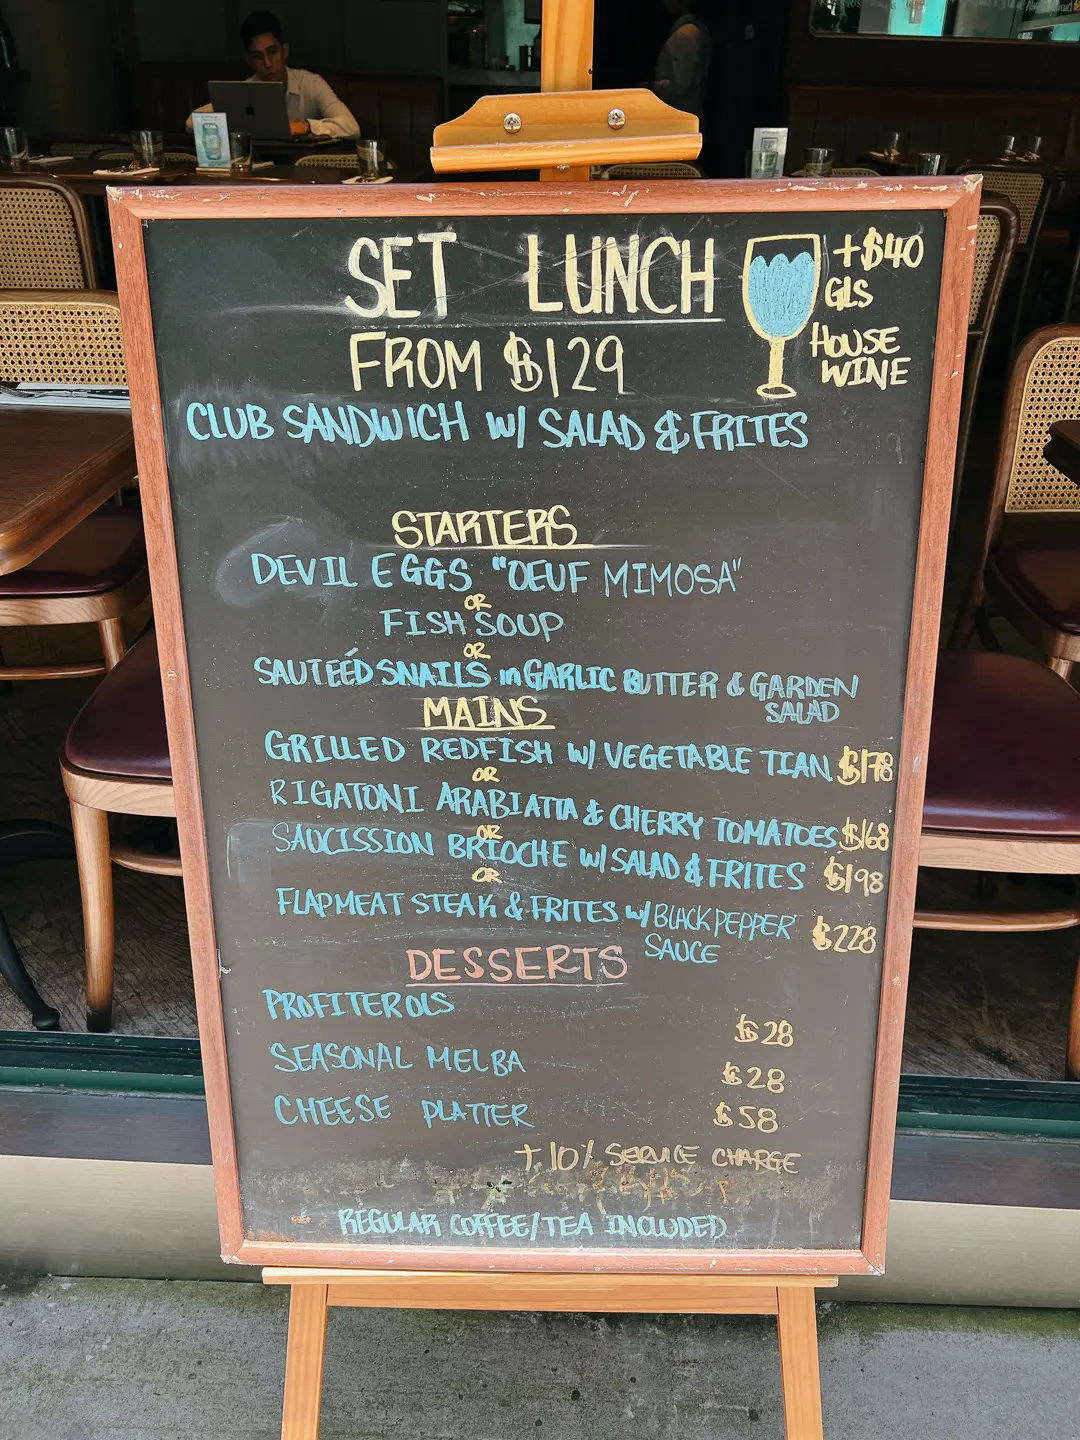 SET LUNCH
+$40
GLS
HOUSE
WINE
FROM $129
CLUB SANDWICH W/ SALAD & FRITES
STARTERS
DEVIL EGGS "OEUF MIMOSA"
OR
FISH SOUP
OR
SAUTEÉD SNAILS in GARLIC BUTTER & GARDEN
SALAD
MAINS
GRILLED REDFISH W/ VEGETABLE TIAN $178
OR
RIGATONI ARABIATTA & CHERRY TOMATOES $168
OR
SAUCISSION BRIOCHE W/ SALAD & FRITES $198
OR
FLAPMEAT STEAK & FRITES W/ BLACK PEPPER
SAUCE $228
DESSERTS
PROFITEROLS $28
SEASONAL MELBA $28
CHEESE PLATTER $58
+10% SERVICE CHARGE
REGULAR COFFEE/TEA INCLUDED